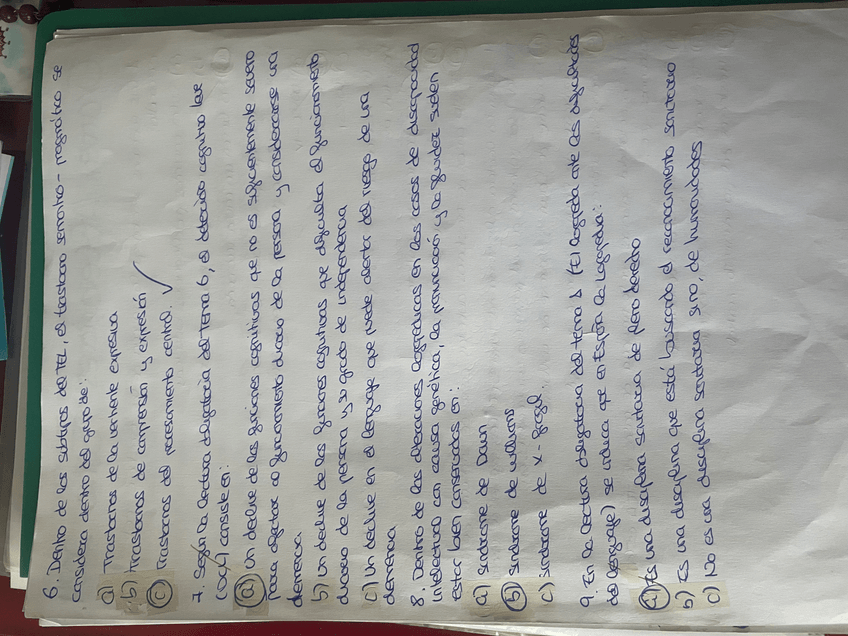 6. Dentro de los subtipos del TEL, el trastorno semántico-pragmático se
considera dentro del grupo de:
a) Trastornos de la vertiente expresiva
b) Trastornos de comprensión y expresión
c) Trastornos del procesamiento central.
7. Según la lectura obligatoria del tema 6, el deterioro cognitivo leve
(DCL) consiste en:
a) Un declive de las funciones cognitivas que no es suficientemente severo
para afectar al funcionamiento diario de la persona y considerarse una
demencia.
b) Un declive de las funciones cognitivas que dificulta el funcionamiento
diario de la persona y su grado de independencia
c) Un declive en el lenguaje que puede alertar del riesgo de una
demencia
8. Dentro de las alteraciones logopédicas en los casos de discapacidad
intelectual con causa genética, la pronunciación y la fluidez suelen
estar bien conservadas en:
a) Síndrome de Down
b) Síndrome de Williams
c) Síndrome de X-frágil.
9. En la lectura obligatoria del tema 1 (El logopeda ante las dificultades
del lenguaje) se indica que en España la logopedia:
a) Es una disciplina sanitaria de pleno derecho
b) Es una disciplina que está buscando el reconocimiento sanitario
c) No es una disciplina sanitaria sino, de humanidades